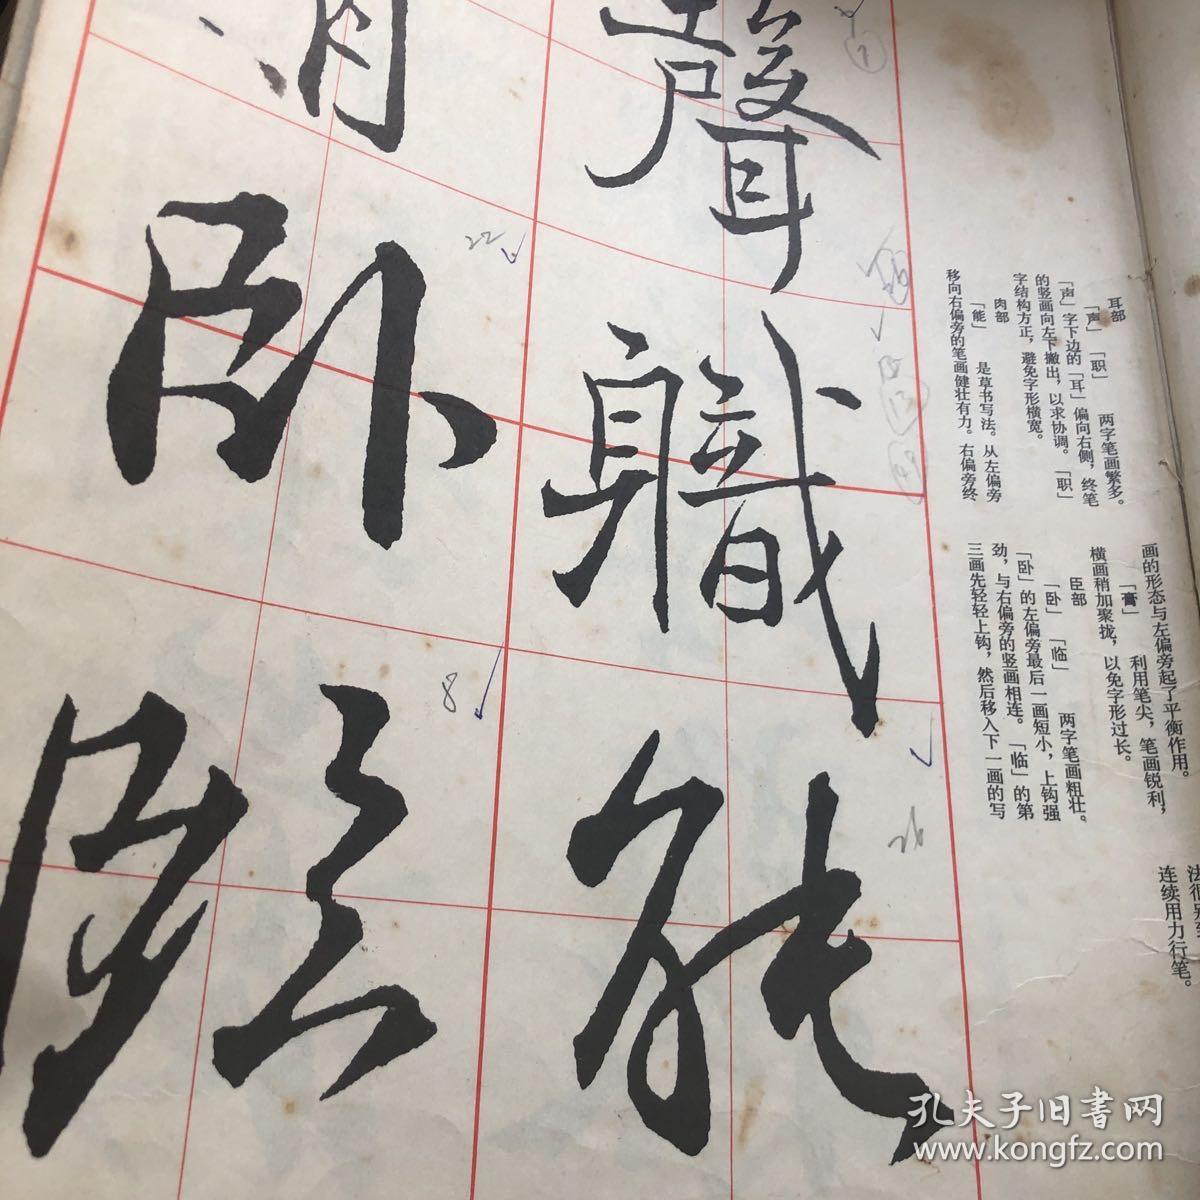 聲
職
能
卧
臨
耳部
「声」「职」 两字笔画繁多。
「声」字下边的「耳」偏向右侧，终笔
的竖画向左下撇出，以求协调。「职」
字结构方正，避免字形横宽。
肉部
「能」 是草书写法。从左偏旁
移向右偏旁的笔画健壮有力。右偏旁终
画的形态与左偏旁起了平衡作用。
「膏」 利用笔尖，笔画锐利，
横画稍加聚拢，以免字形过长。
臣部
「卧」「临」 两字笔画粗壮。
「卧」的左偏旁最后一画短小，上钩强
劲，与右偏旁的竖画相连。「临」的第
三画先轻轻上钩，然后移入下一画的写
连续用力行笔。
7
22
8
26
孔夫子旧书网
www.kongfz.com